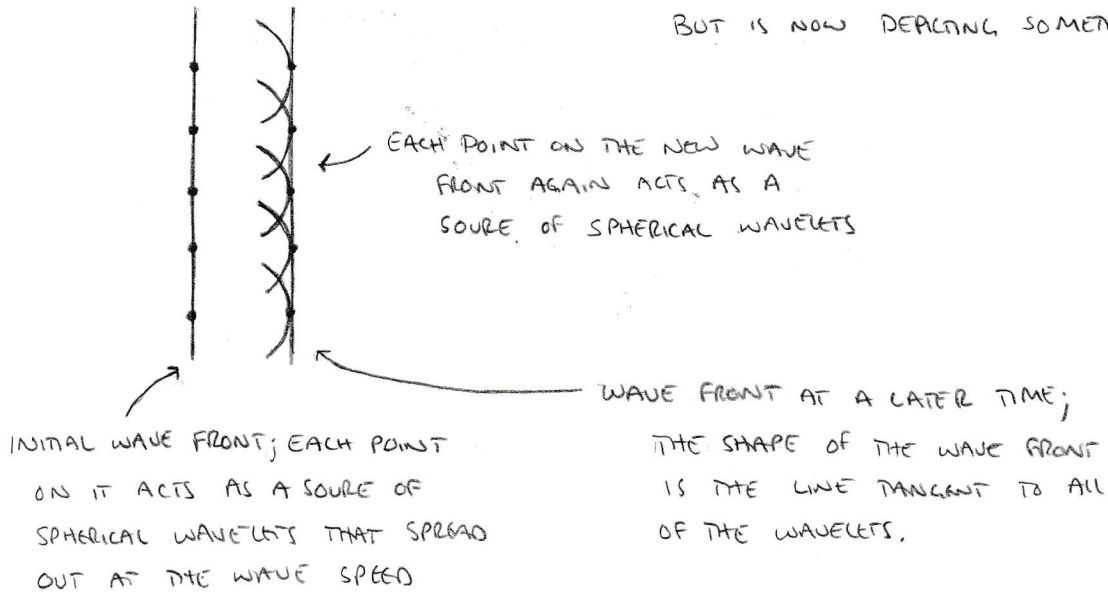 BUT IS NOW DEPICTING
EACH POINT ON THE NEW WAVE
FRONT AGAIN ACTS AS A
SOURE OF SPHERICAL WAVELETS
WAVE FRONT AT A LATER TIME;
THE SHAPE OF THE WAVE FRONT
IS THE LINE TANGENT TO ALL
OF THE WAVELETS.
INITIAL WAVE FRONT; EACH POINT
ON IT ACTS AS A SOURE OF
SPHERICAL WAVELETS THAT SPREAD
OUT AT THE WAVE SPEED